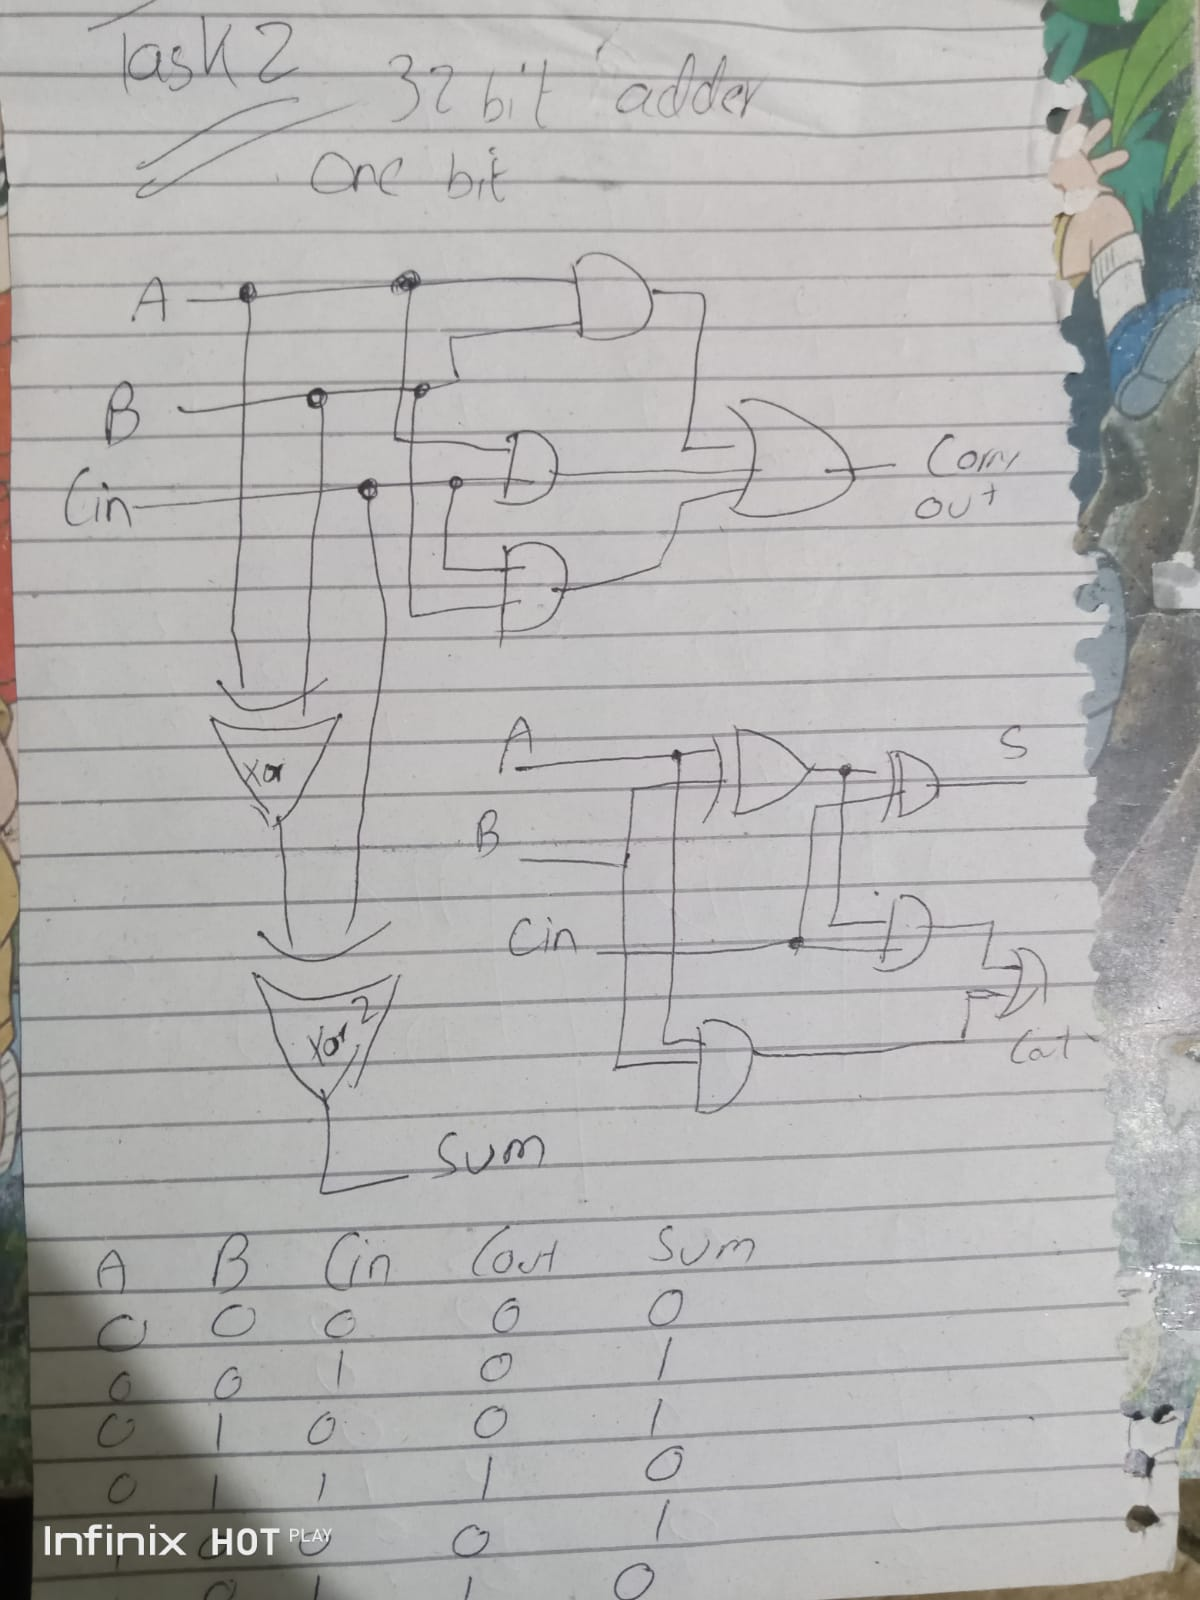 Task 2
32 bit adder
One bit
A
B
Cin
Carry
out
Xor
A
S
B
Cin
Xor 2
Cout
Sum
A B Cin Cout Sum
0 0 0 0 0
0 0 1 0 1
0 1 0 0 1
0 1 1 1 0
1 0 0 0 1
0 1 1 0
Infinix HOT PLAY